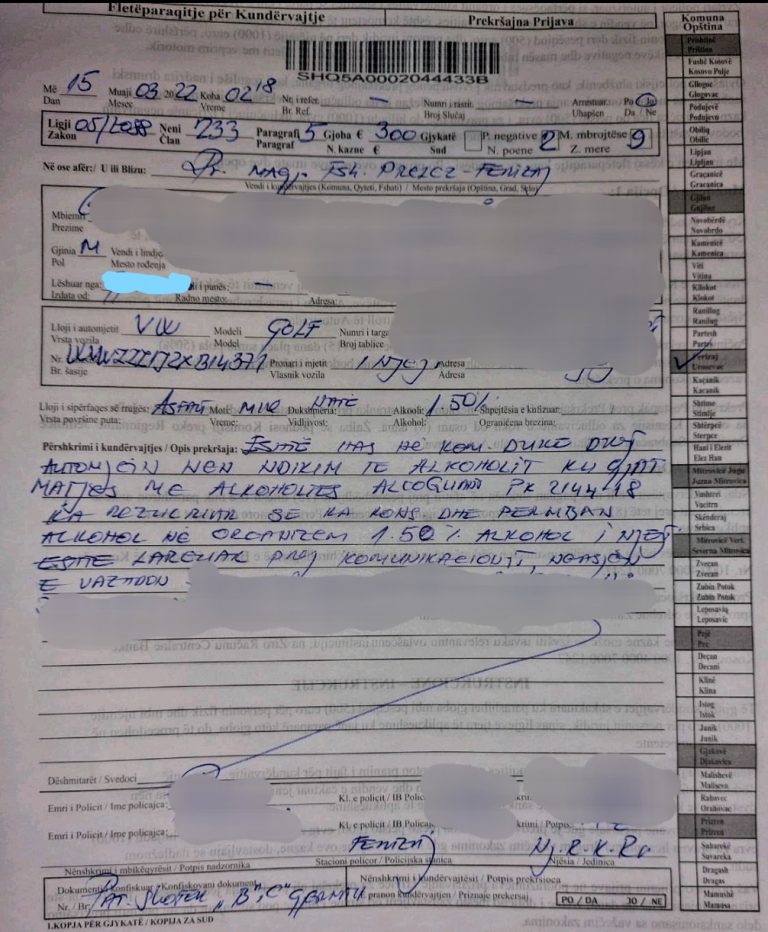 Fletëparaqitje për Kundërvajtje Prekršajna Prijava
SHQ5A0002044433B
Më 15 Muaji 03 2022 Koha 02 18 Nr. i refer. — Numri i rastit. — Arrestuar Po Jo
Dan Mesec Vreme Br. Ref. Broj Slučaj Uhapšen Da / Ne
Ligji 05/L-088 Neni 233 Paragrafi 5 Gjoba € 300 Gjykatë P. negative 2 M. mbrojtëse 9
Zakon Član Paragraf N. kazne € Sud N. poene Z. mere
Në ose afër:/ U ili Blizu: Rr. mag. Fsh. Prelez - Ferizaj
Vendi i kundërvajtjes (Komuna, Qyteti, Fshati) / Mesto prekršaja (Opština, Grad, Selo)
Mbiemri
Prezime
Gjinia M Vendi i lindjes
Pol Mesto rođenja
Lëshuar nga: i punës:
Izdata od: Radno mesto: Adresa:
Lloji i automjetit VW Modeli GOLF Numri i targa
Vrsta vozila Model Broj tablice
Nr. Pronari i mjetit I NJEJ. Adresa
Br. šasije Vlasnik vozila Adresa
Lloji i sipërfaqes së rrugës: ASFALT Moti MIRE Dukshmëria: NATE Alkooli: 1.50% Shpejtësia e kufizuar:
Vrsta površine puta: Vreme: Vidljivost: Alkohol: Ograničena brezina:
Përshkrimi i kundërvajtjes / Opis prekršaja: ESHTE HAS NE KOM. DUKE DREJ
AUTOMJETIN NEN NDIKIM TE ALKOHOLIT KU GJAT
MATJES ME ALKOHOLTES ALCOQUANT PK 2144-18
KA REZULTUAR SE KA KONS DHE PERMBAN
ALKOHOL NE ORGANIZEM 1.50% ALKOHOL I NJEJTI
ESHTE LARGUAR PREJ KOMUNIKACIONIT, NGASJEN
E VAZHDON
Dëshmitarët / Svedoci
Emri i Policit / Ime policajca: Kl. e policit / IB Polic
Emri i Policit / Ime policajca: Kl. e policit / IB Polic
krimi / Potpis
Ferizaj Nj.R.K.Rr
Nënshkrimi i mbikëqyrësit / Potpis nadzornika Stacioni policor / Policijska stanica Njësia / Jedinica
Dokumenti i konfiskuar / Konfiskovani dokument Nënshkrimi i kundërvajtësit / Potpis prekrsioca
Nr. / Br: PAT. SHOFER "B", "C" GJERMAN E pranon kundërvajtjen / Priznaje prekersaj. PO / DA JO / NE
1.KOPJA PËR GJYKATË / KOPIJA ZA SUD
Komuna
Opština
Prishtinë
Priština
Fushë Kosovë
Kosovo Polje
Gllogoc
Glogovac
Podujevë
Podujevo
Obiliq
Obilic
Lipjan
Lipljan
Graçanicë
Gracanica
Gjilan
Gnjilane
Novobërdë
Novobrdo
Kamenicë
Kamenica
Viti
Vitina
Kllokot
Klokot
Ranillug
Ranilug
Partesh
Parteš
Ferizaj
Urosevac
Kaçanik
Kacanik
Shtime
Stimlje
Shtërpcë
Sterpce
Hani i Elezit
Elez Han
Mitrovicë Jugu
Juzna Mitrovica
Vushtrri
Vucitrn
Skënderaj
Srbica
Mitrovicë Veri.
Severna Mitrovica
Zveçan
Zvecan
Zubin Potok
Zubin Potok
Leposaviq
Leposavic
Pejë
Pec
Deçan
Decani
Klinë
Klina
Istog
Istok
Junik
Junik
Gjakovë
Djakovica
Malishevë
Maliseva
Rahovec
Orahovac
Prizren
Prizren
Suharekë
Suvareka
Dragash
Dragas
Mamushë
Mamusa